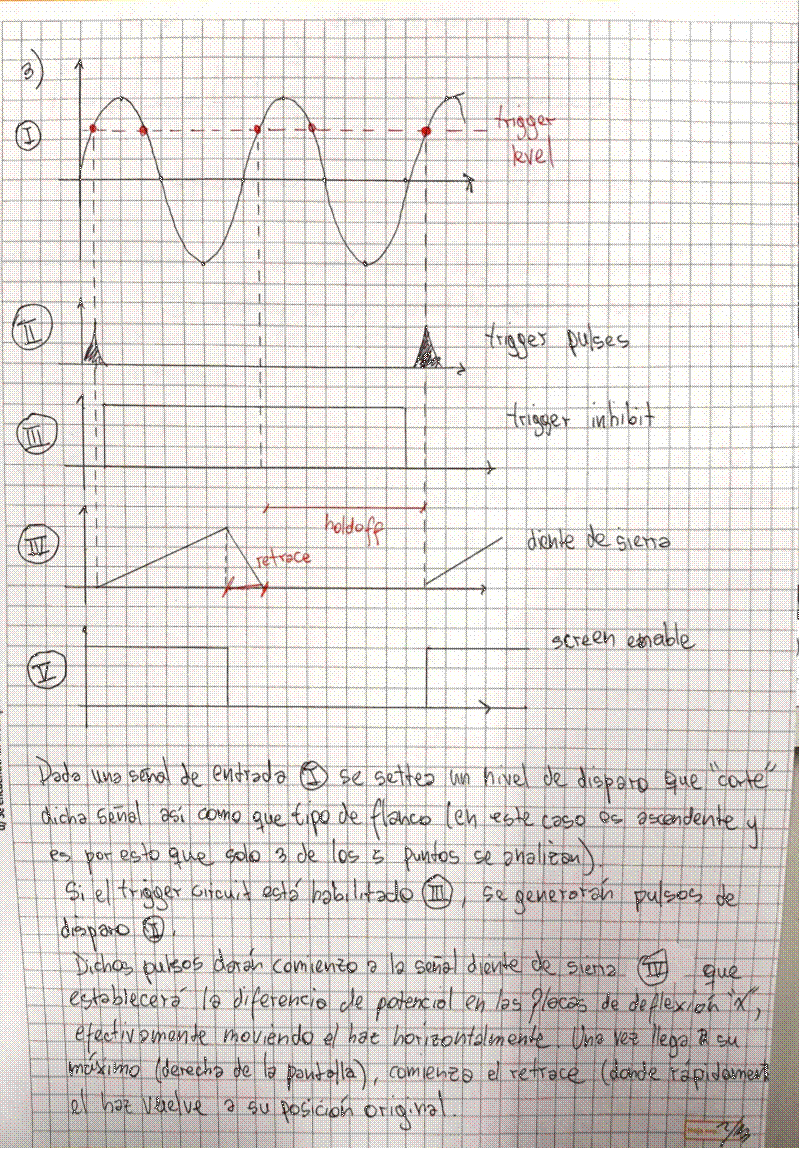 3)
I
trigger
level
II
trigger pulses
III
trigger inhibit
holdoff
IV
diente de sierra
retrace
screen enable
V
Dada una señal de entrada I se settea un nivel de disparo que "corte"
dicha señal así como que tipo de flanco (en este caso es ascendente y
es por esto que solo 3 de los 5 puntos se analizan).
Si el trigger circuit está habilitado III, se generarán pulsos de
disparo II.
Dichos pulsos darán comienzo a la señal diente de sierra IV que
establecerá la diferencia de potencial en las placas de deflexión "x",
efectivamente moviendo el haz horizontalmente. Una vez llega a su
máximo (derecha de la pantalla), comienza el retrace (donde rápidament
el haz vuelve a su posición original.